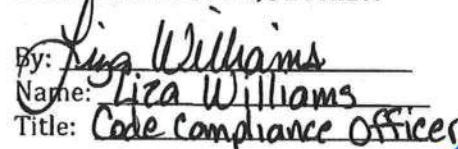 By: Liza Williams
Name: Liza Williams
Title: Code Compliance Officer